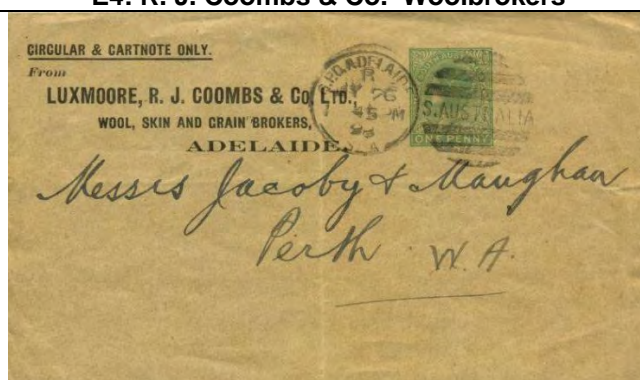 E4: R. J. Coombs & Co. Woolbrokers
CIRCULAR & CARTNOTE ONLY.
From
LUXMOORE, R. J. COOMBS & Co. LTD.,
WOOL, SKIN AND GRAIN BROKERS,
ADELAIDE.
G.P.O. ADELAIDE
R
45 PM
S.A
S. AUSTRALIA
ONE PENNY
Messrs Jacoby & Maughan
Perth W.A.